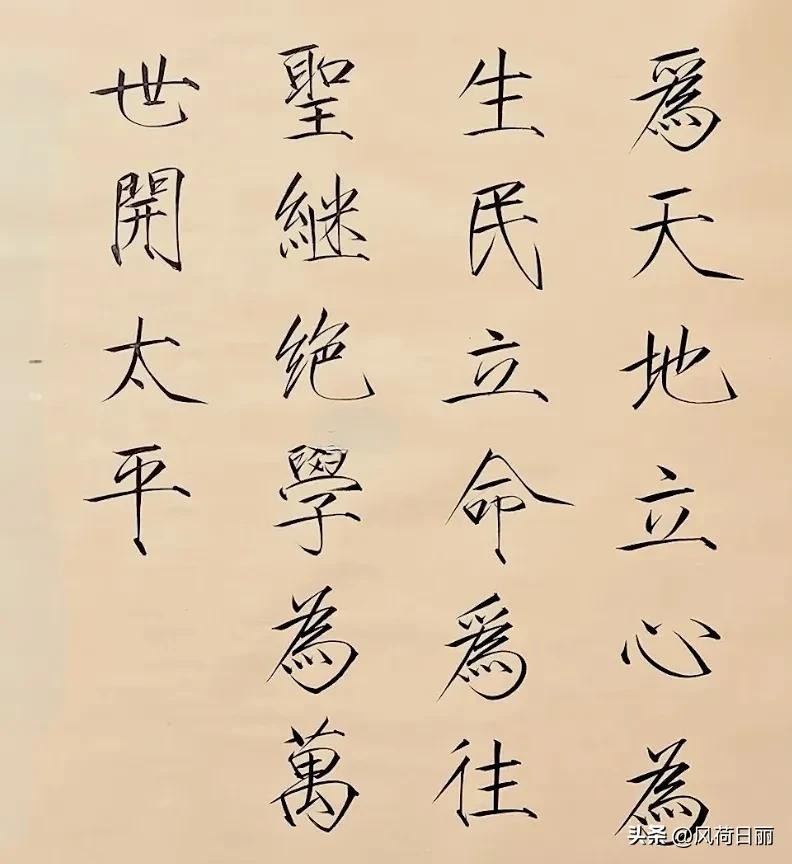 爲天地立心為
生民立命爲往
聖継绝學為萬
世開太平
头条 @风荷日丽